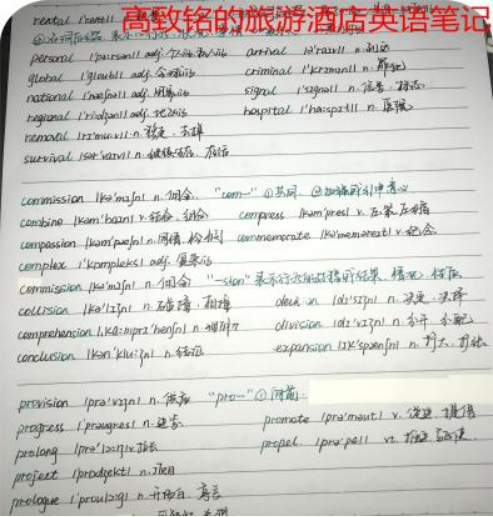 高致铭的旅游酒店英语笔记
rental /'rentl/
personal /'pɜːrsənl/ adj. 个人的
arrival /ə'raɪvl/ n. 到达
global /'gləʊbl/ adj. 全球的
criminal /'krɪmɪnl/ n. 罪犯
national /'næʃnəl/ adj.
signal /'sɪgnəl/ n. 信号
regional /'riːdʒənl/ adj. 地区的
hospital /'hɑːspɪtl/ n. 医院
removal /rɪ'muːvl/ n. 去掉
survival /sər'vaɪvl/ n.
commission /kə'mɪʃn/ n. 佣金 "com-" ①共同
combine /kəm'baɪn/ v. 结合
compress /kəm'pres/ v. 压紧
compassion /kəm'pæʃn/ n. 同情
commemorate /kə'meməreɪt/ v. 纪念
complex /'kɒmpleks/ adj. 复杂的
commission /kə'mɪʃn/ n. 佣金 "-sion" 表示
collision /kə'lɪʒn/ n. 碰撞
decision /dɪ'sɪʒn/ n. 决定
comprehension /ˌkɑːmprɪ'henʃn/ n. 理解力
division /dɪ'vɪʒn/ n. 分开 分配
conclusion /kən'kluːʒn/ n. 结论
expansion /ɪk'spænʃn/ n. 扩大
provision /prə'vɪʒn/ n. 供应 "pro-" ①向前
progress /'prəʊgres/ n. 进步
promote /prə'məʊt/ v. 促进
prolong /prə'lɔːŋ/ v. 延长
propel /prə'pel/ vt. 推进
project /'prɒdʒekt/ n. 项目
prologue /'prəʊlɒg/ n. 开场白 序言